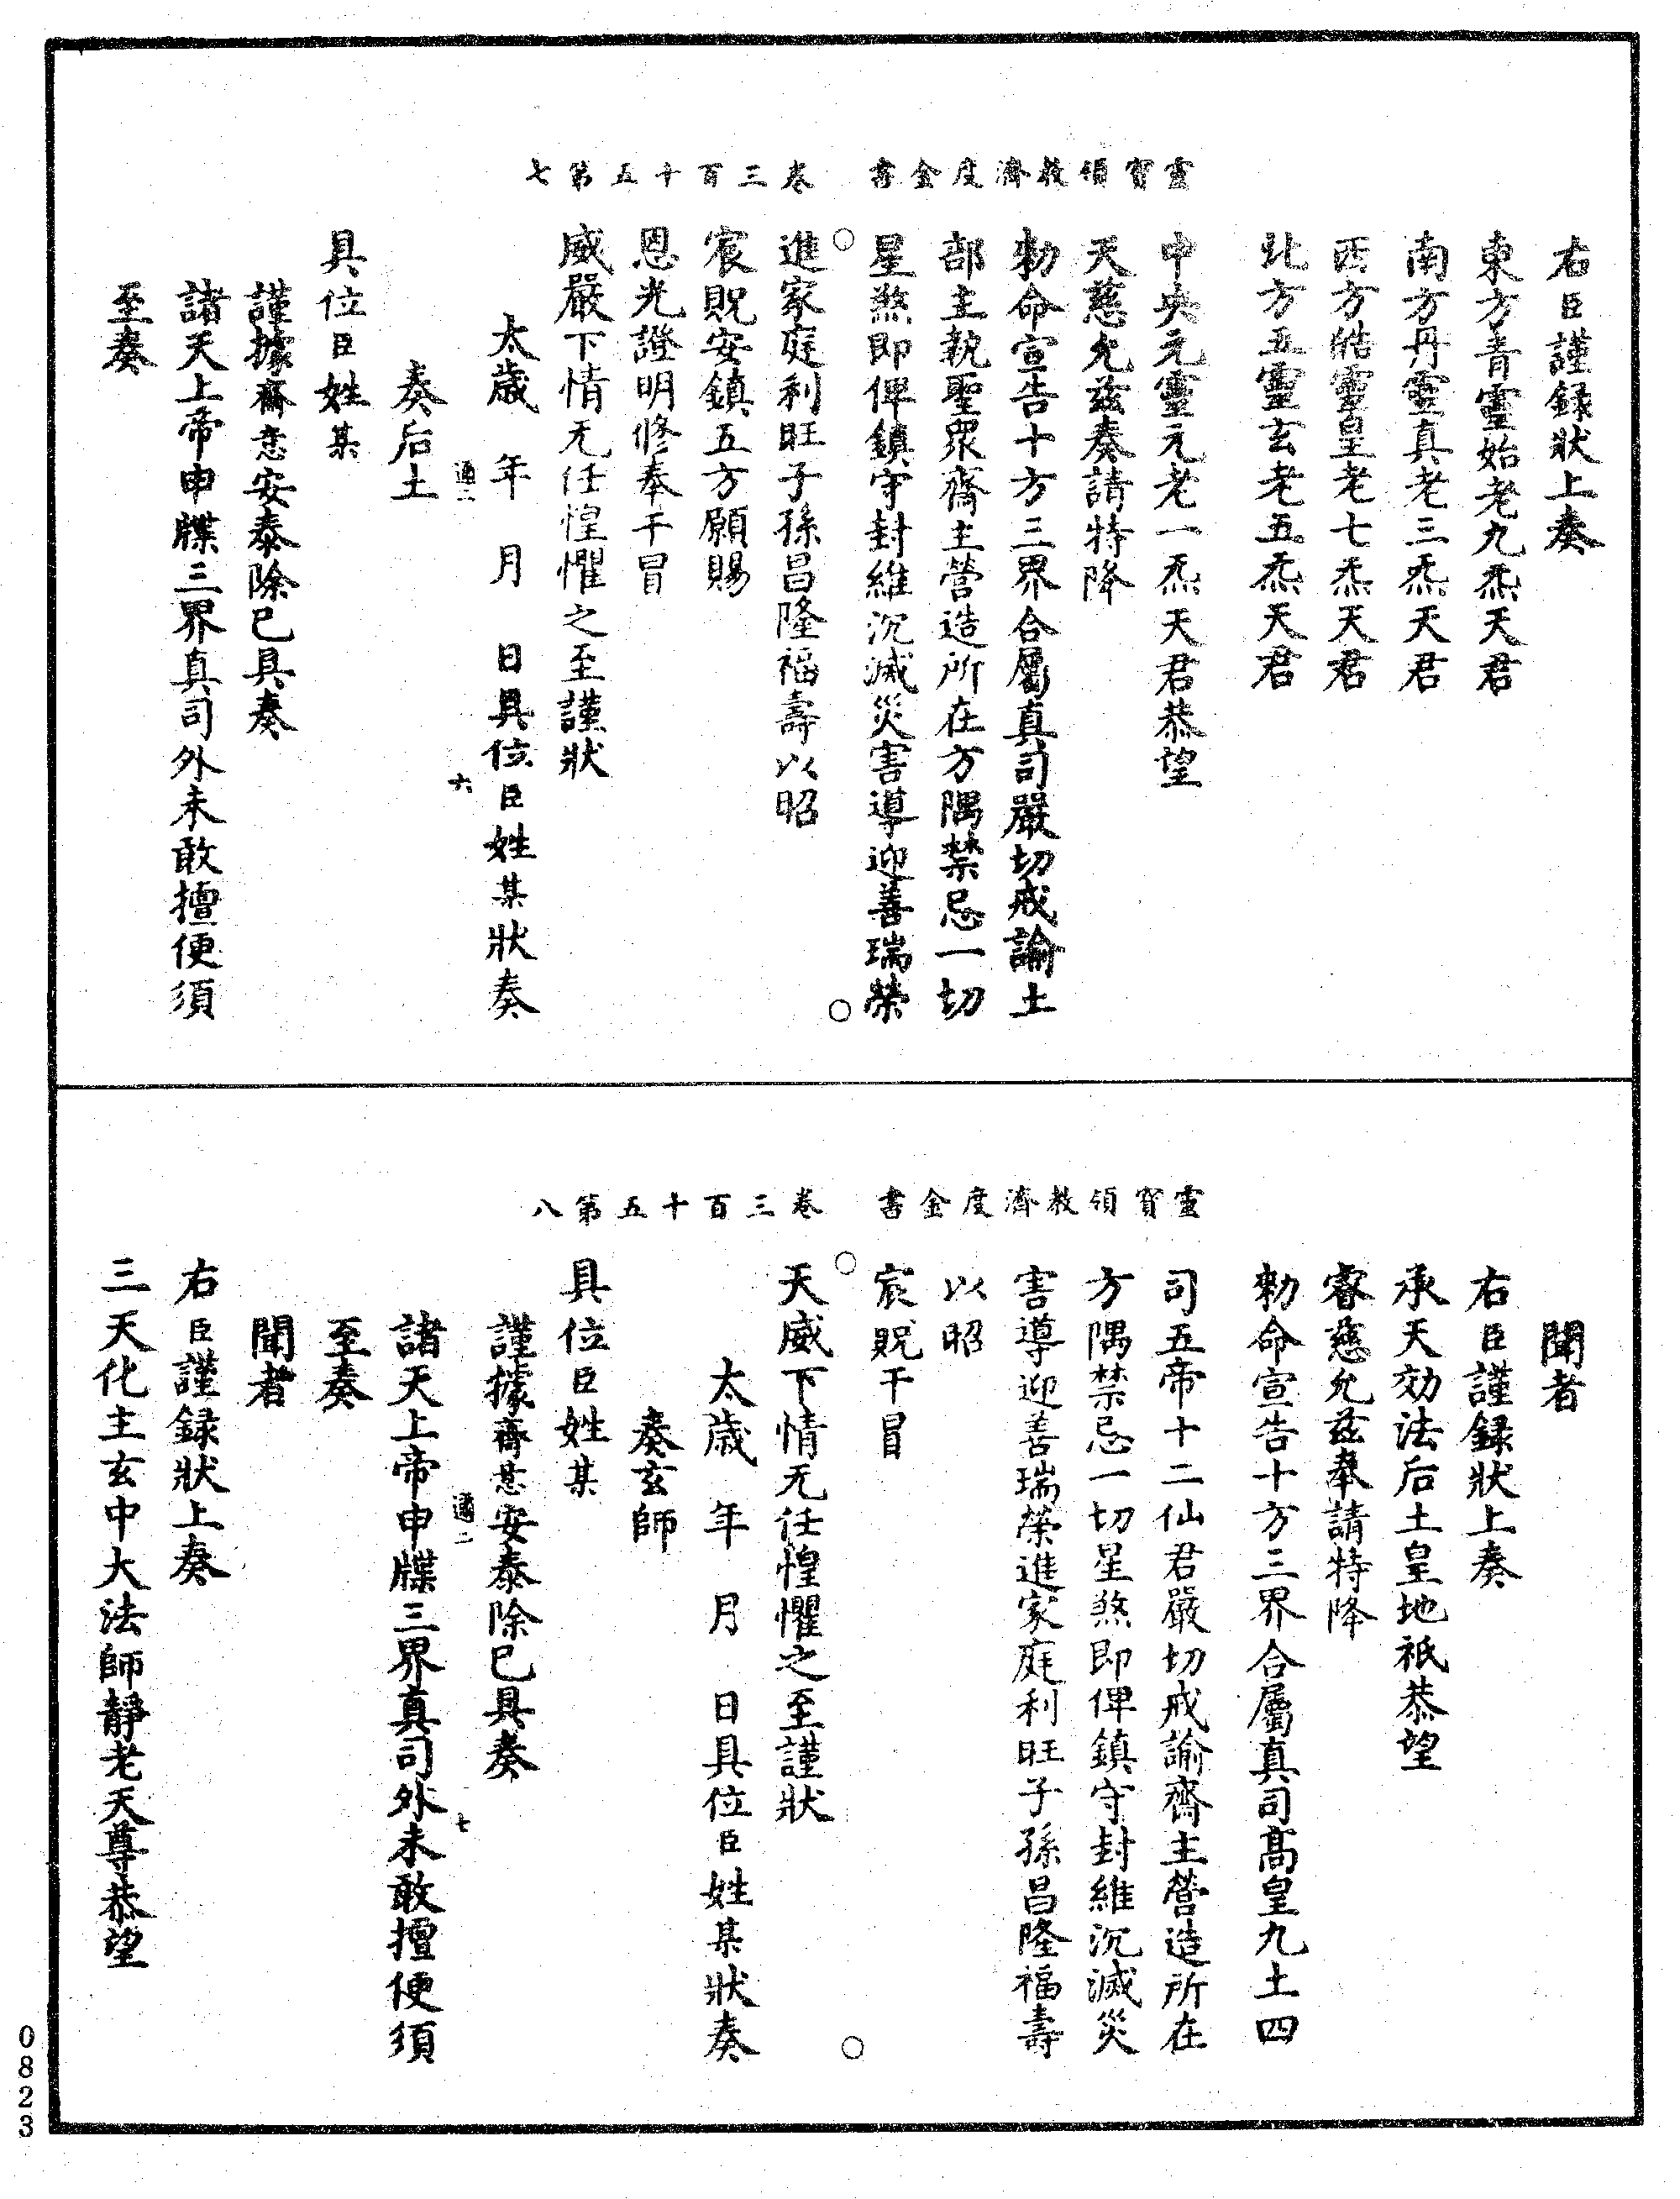 靈寶領教濟度金書　卷三百十五第七
右臣謹録狀上奏
東方青靈始老九炁天君
南方丹靈真老三炁天君
西方皓靈皇老七炁天君
北方五靈玄老五炁天君
中央元靈元老一炁天君恭望
天慈允兹奏請特降
勑命宣告十方三界合屬真司嚴切戒諭土
部主執聖眾齋主營造所在方隅禁忌一切
星煞即俾鎮守封維沉滅災害導迎善瑞榮
進家庭利旺子孫昌隆福壽以昭
宸貺安鎮五方願賜
恩光證明修奉干冒
威嚴下情无任惶懼之至謹狀
太歲　年　月　日具位臣姓某狀奏
遹二　六
奏后土
具位臣姓某
謹據齋意安泰除已具奏
諸天上帝申牒三界真司外未敢擅便須
至奏
靈寶領教濟度金書　卷三百十五第八
聞者
右臣謹録狀上奏
承天効法后土皇地祇恭望
睿慈允兹奉請特降
勑命宣告十方三界合屬真司髙皇九土四
司五帝十二仙君嚴切戒諭齋主營造所在
方隅禁忌一切星煞即俾鎮守封維沉滅災
害導迎善瑞榮進家庭利旺子孫昌隆福壽
以昭
宸貺干冒
天威下情无任惶懼之至謹狀
太歲　年　月　日具位臣姓某狀奏
奏玄師
具位臣姓某
謹據齋意安泰除已具奏
遹二　七
諸天上帝申牒三界真司外未敢擅便須
至奏
聞者
右臣謹録狀上奏
三天化主玄中大法師靜老天尊恭望
0823